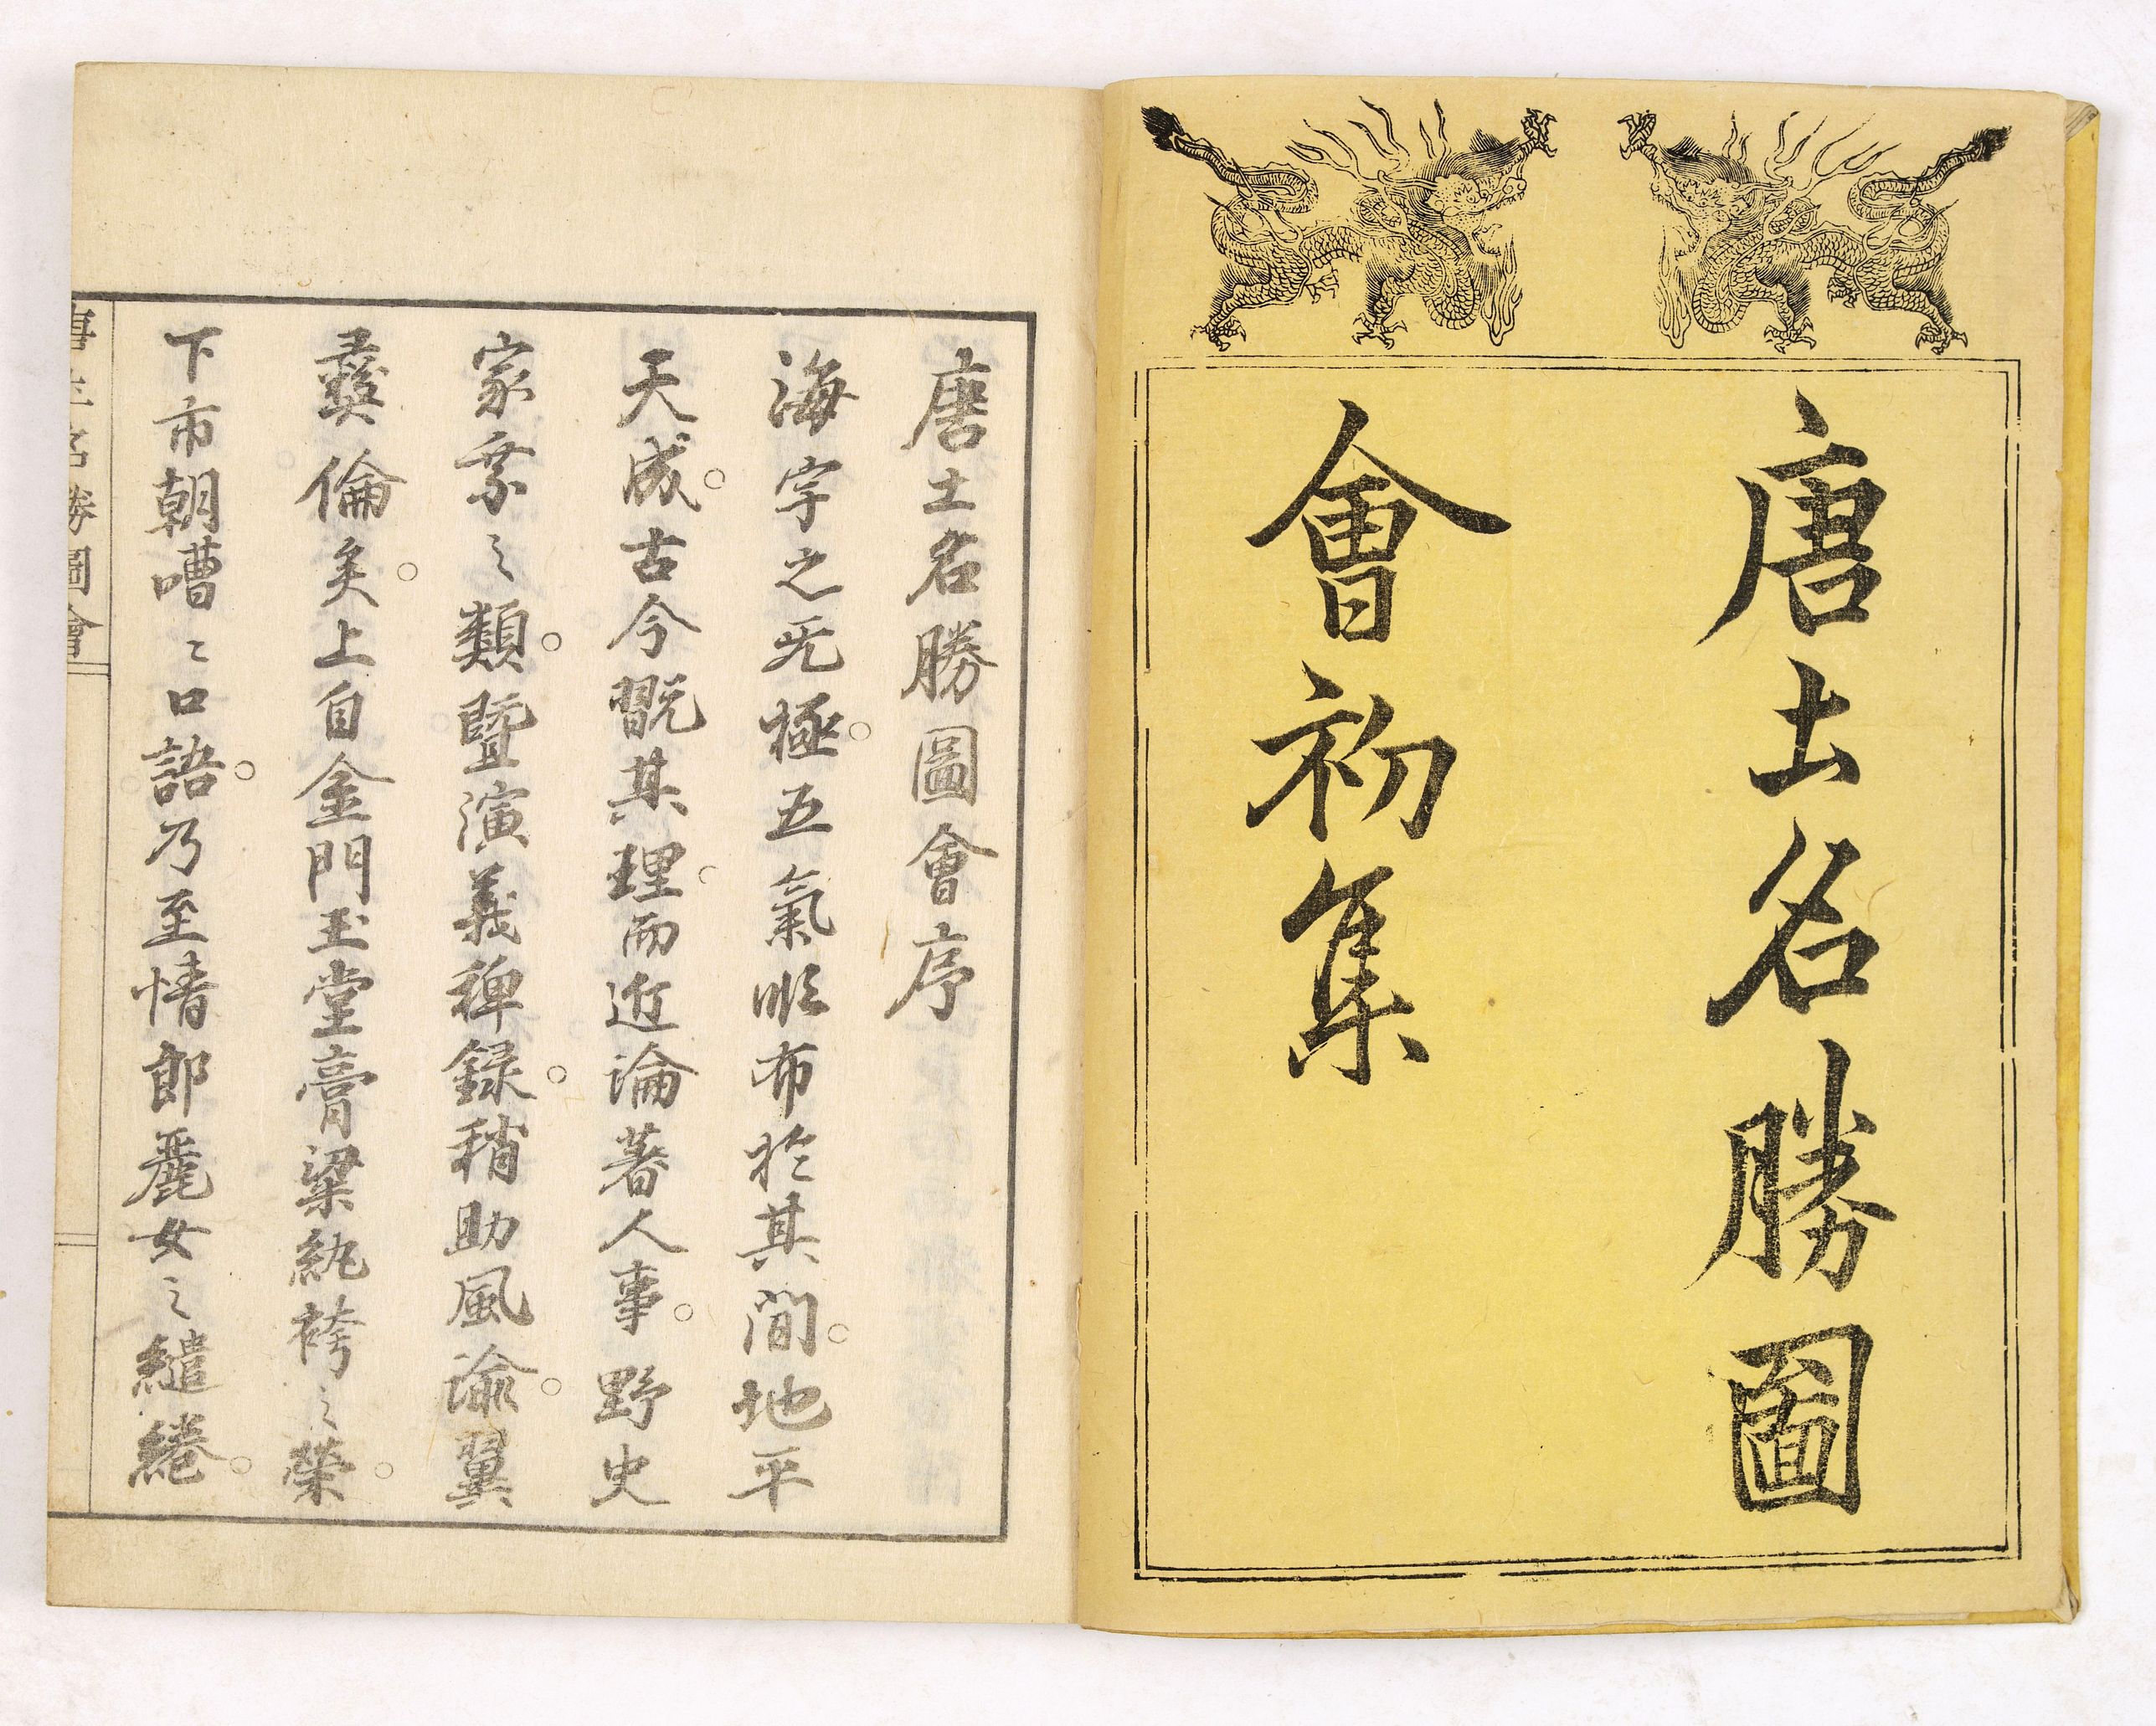 唐土名勝圖
會初集
唐土名勝圖會序
海宇之无極。五氣順布於其間。地平
天成。古今翫其理。而近論著人事。野史
家乘之類。暨演義稗録。稍助風諭。翼
彝倫矣。上自金門玉堂膏粱紈袴之榮。
下市朝嘈〻口語。乃至情郎麗女之繾綣。
唐土名勝圖會